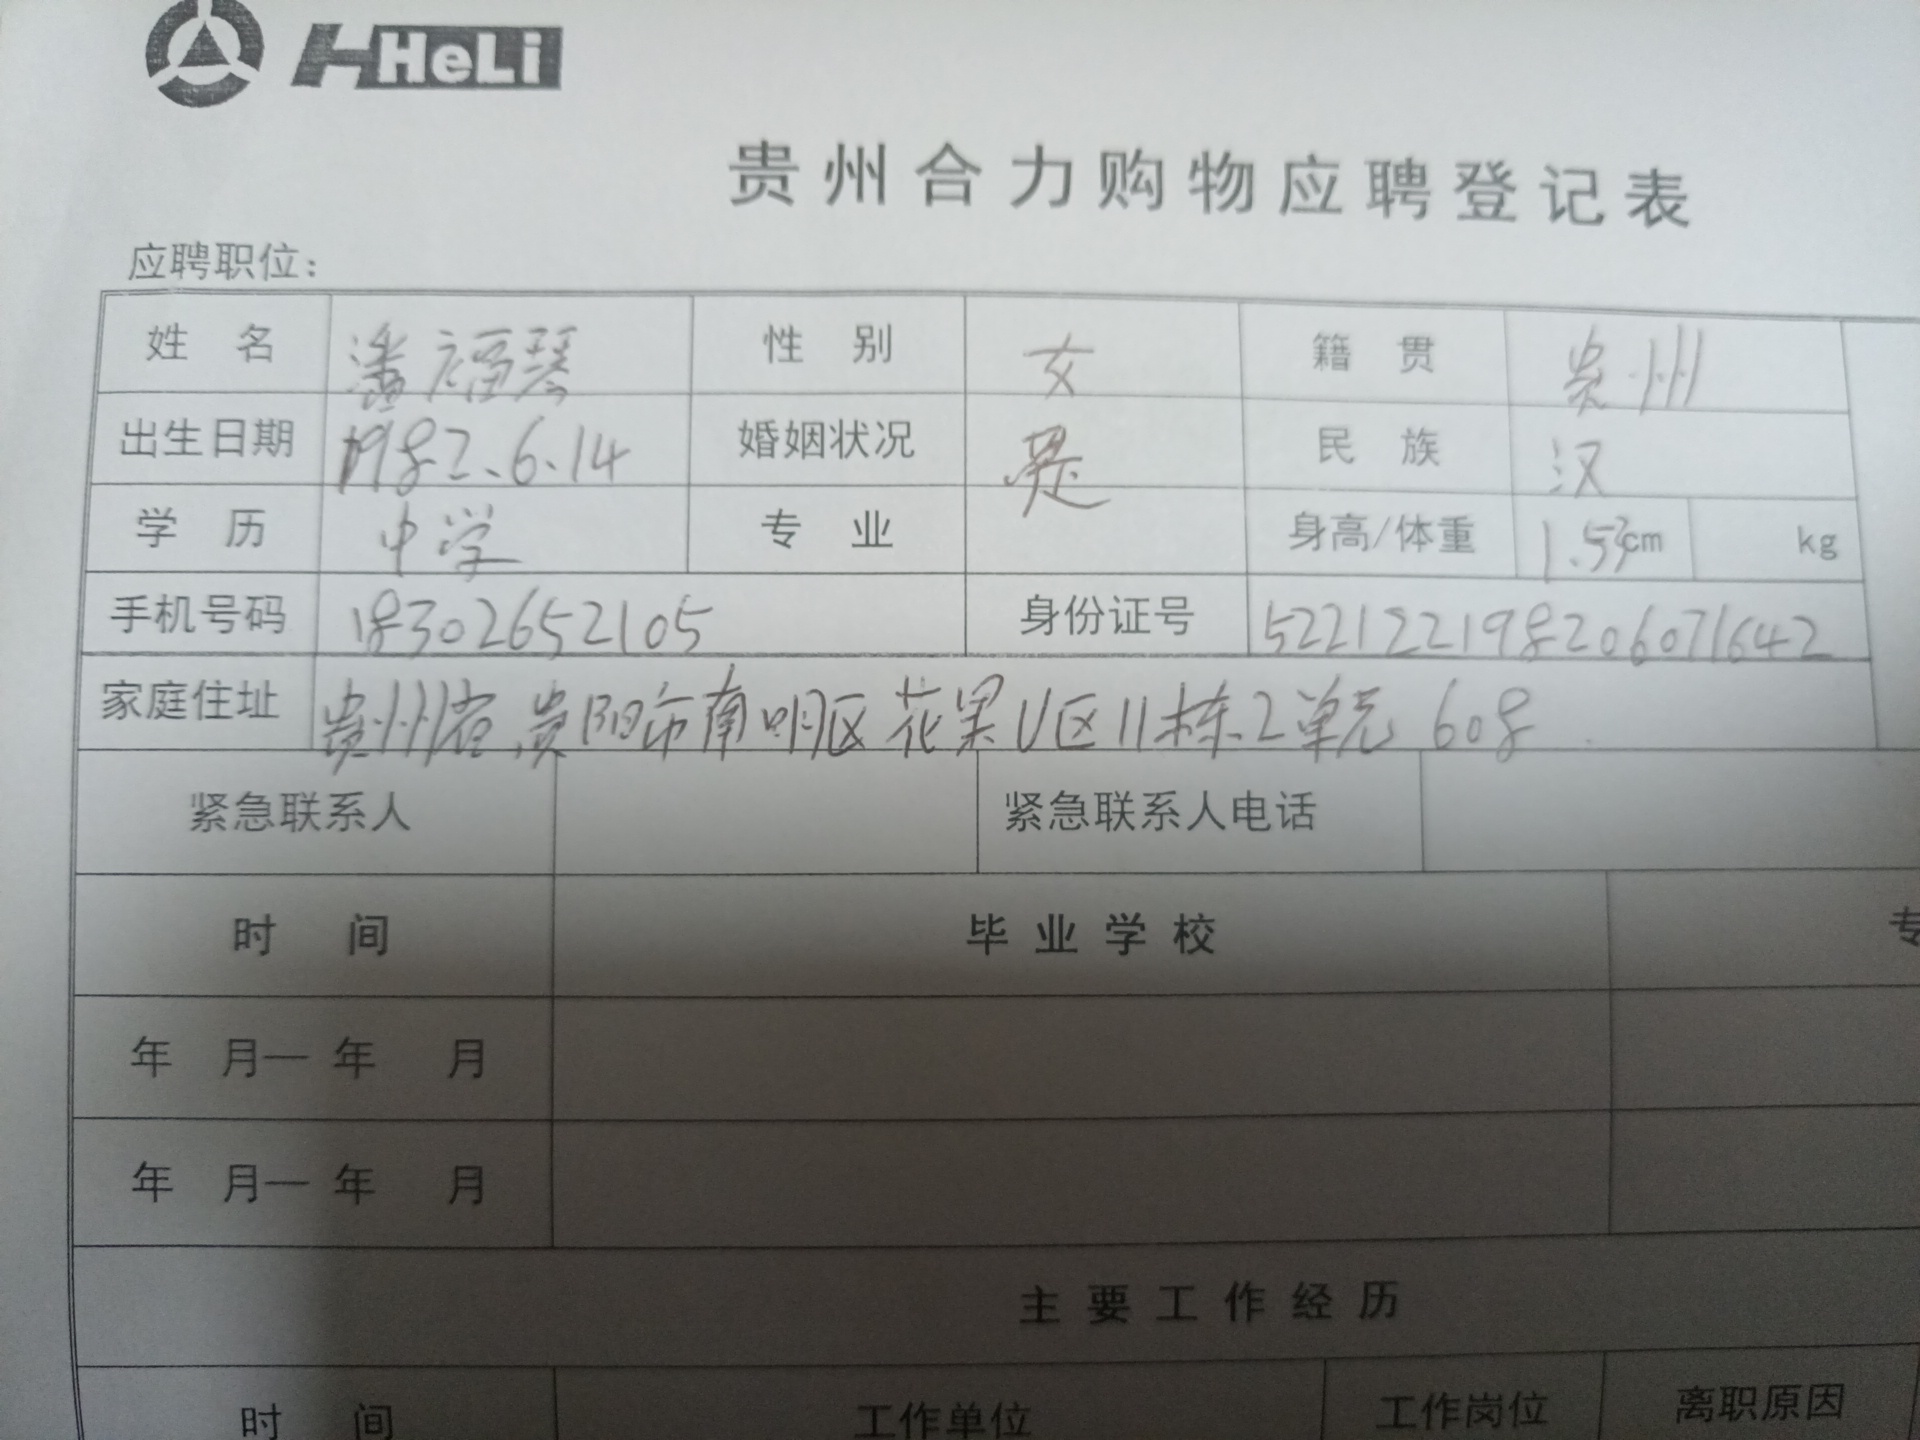 HeLi
贵州合力购物应聘登记表
应聘职位：
姓 名 潘福琴 性 别 女 籍 贯 贵州
出生日期 1982.6.14 婚姻状况 是 民 族 汉
学 历 中学 专 业 身高/体重 1.53cm kg
手机号码 18302652105 身份证号 522122198206071642
家庭住址 贵州省.贵阳市南明区花果V区11栋.2单元 608
紧急联系人 紧急联系人电话
时 间 毕业学校 专
年 月— 年 月
年 月— 年 月
主要工作经历
时 间 工作单位 工作岗位 离职原因